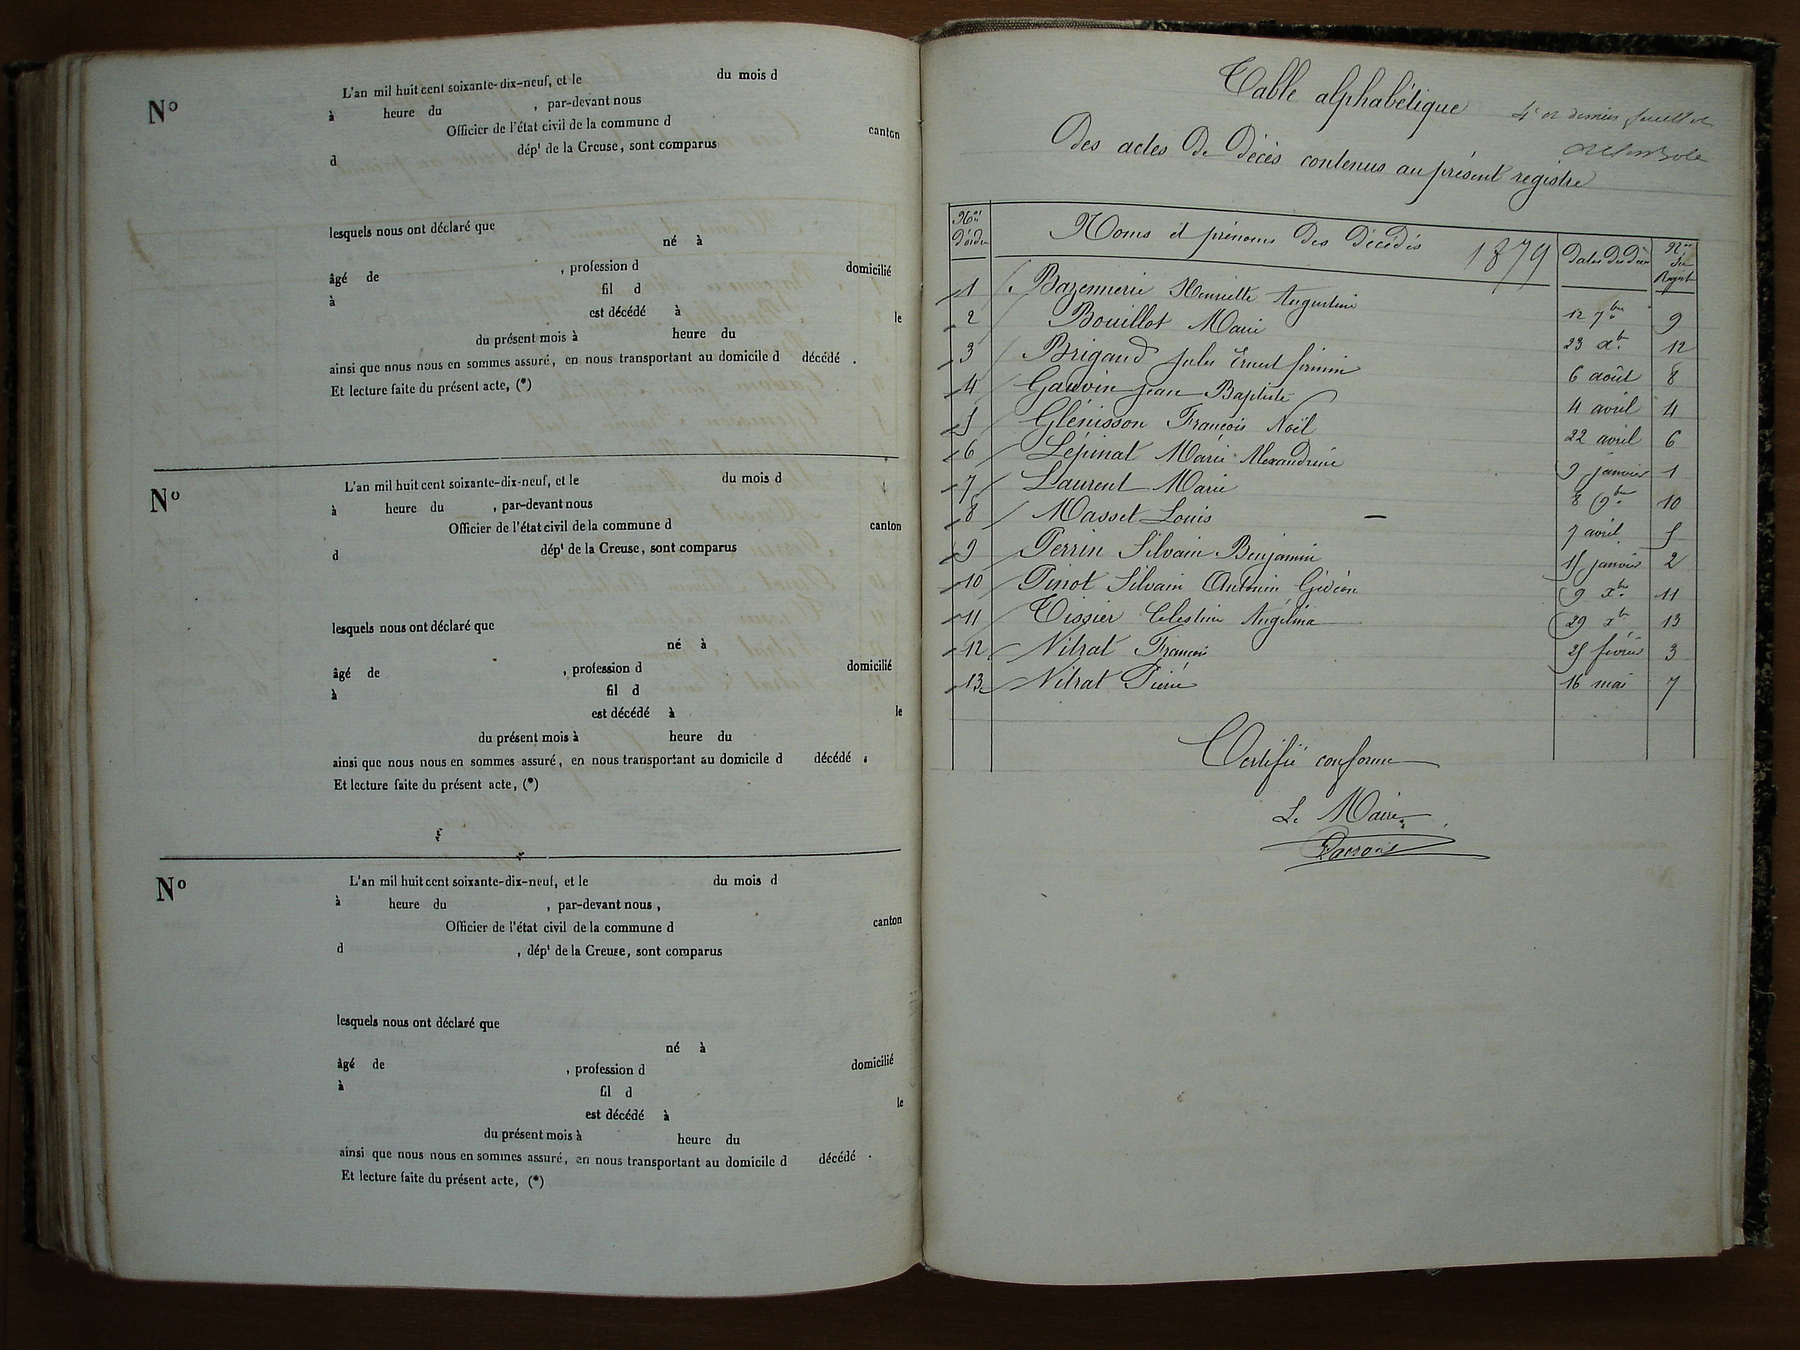 Nº
L'an mil huit cent soixante-dix-neuf, et le du mois d
à heure du , par-devant nous
Officier de l'état civil de la commune d canton
d dépt de la Creuse, sont comparus
lesquels nous ont déclaré que
né à
âgé de , profession d domicilié
à fil d
est décédé à le
du présent mois à heure du
ainsi que nous nous en sommes assuré, en nous transportant au domicile d décédé .
Et lecture faite du présent acte, (*)
Nº
L'an mil huit cent soixante-dix-neuf, et le du mois d
à heure du , par-devant nous
Officier de l'état civil de la commune d canton
d dépt de la Creuse, sont comparus
lesquels nous ont déclaré que
né à
âgé de , profession d domicilié
à fil d
est décédé à le
du présent mois à heure du
ainsi que nous nous en sommes assuré, en nous transportant au domicile d décédé .
Et lecture faite du présent acte, (*)
Nº
L'an mil huit cent soixante-dix-neuf, et le du mois d
à heure du , par-devant nous ,
Officier de l'état civil de la commune d canton
d , dépt de la Creuse, sont comparus
lesquels nous ont déclaré que
né à
âgé de , profession d domicilié
à fil d
est décédé à le
du présent mois à heure du
ainsi que nous nous en sommes assuré, en nous transportant au domicile d décédé .
Et lecture faite du présent acte, (*)
Table alphabétique
4e et dernier feuillet
Des actes de décès contenus au présent registre
Nos d'ordre Noms et prénoms des décédés 1879 Dates des décès Nos du Regist
1 Bazennerie Henriette Augustine 12 7bre 9
2 Bouillot Marie 23 Xbre 12
3 Brigand Jules Ernest firmin 6 août 8
4 Gauvin jean Baptiste 4 avril 4
5 Glénisson François Noël 22 avril 6
6 Lépinat Marie Alexandrine 9 janvier 1
7 Laurent Marie 8 9bre 10
8 Masset Louis 7 avril 5
9 Perrin Silvain Benjamin 15 janvier 2
10 Pinot Silvain Antonin Gédéon 9 Xbre 11
11 Tissier Célestine Angélina 29 Xbre 13
12 Nitrat François 25 février 3
13 Nitrat Pierre 16 mai 7
Certifié conforme
Le Maire